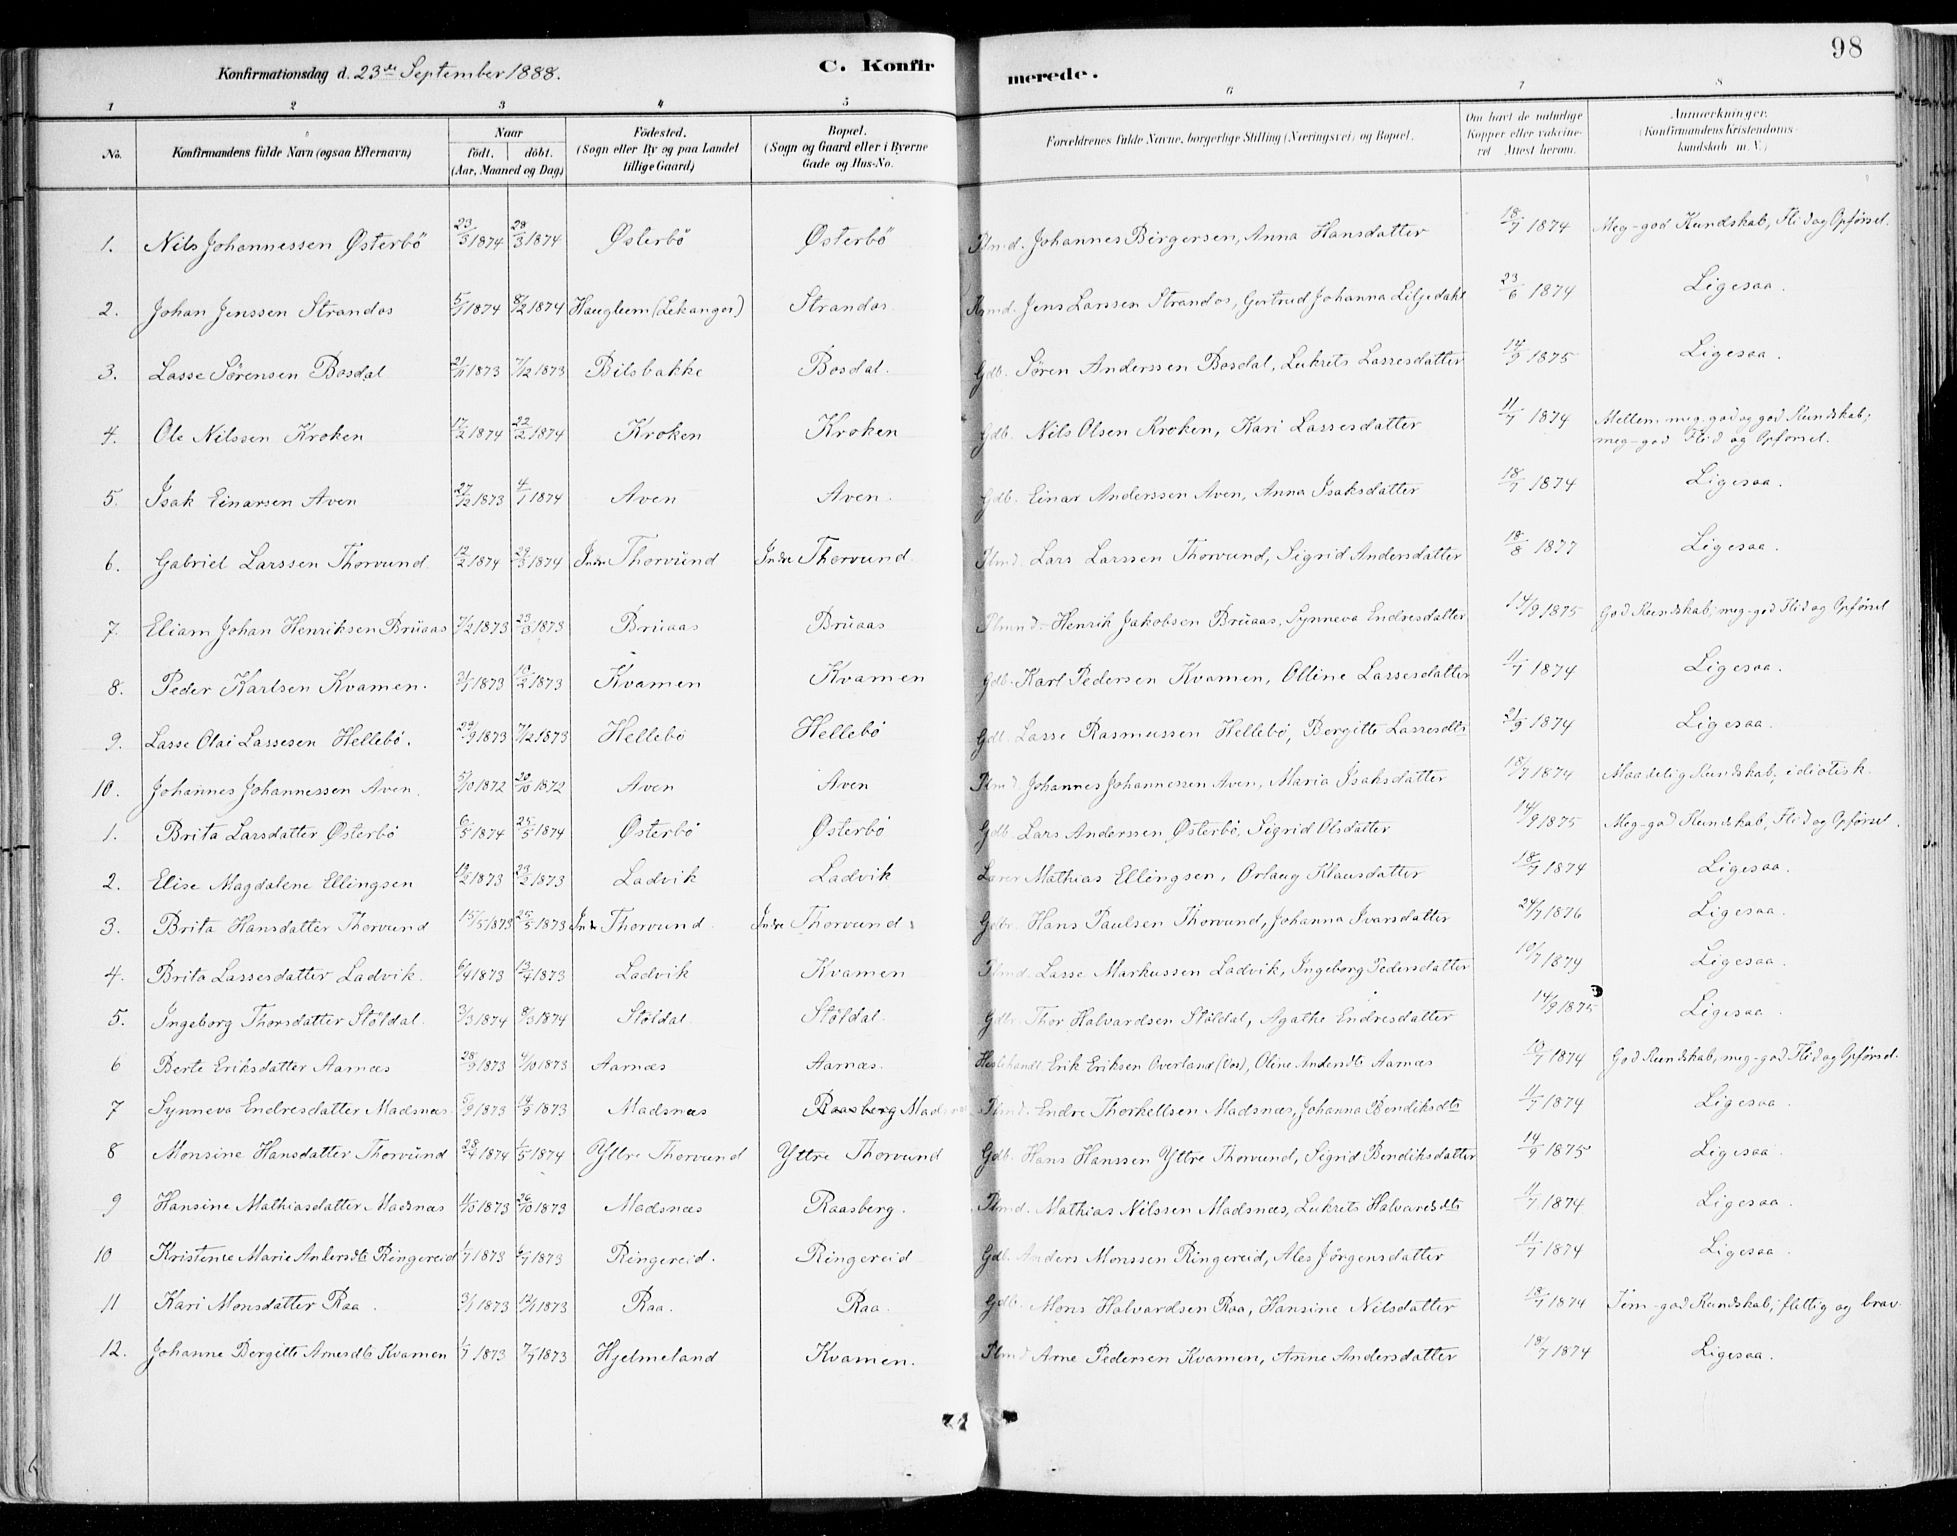 98
Konfirmationsdag d. 23de September 1888. C. Konfirmerede.
1 2 3 4 5 6 7 8
No. Konfirmandens fulde Navn (ogsaa Efternavn) Naar födt. döbt. (Aar, Maaned og Dag) Födested. (Sogn eller By og paa Landet tillige Gaard) Bopæl. (Sogn og Gaard eller i Byerne Gade og Hus-No. Forældrenes fulde Navne, borgerlige Stilling (Næringsvei) og Bopæl. Om havt de naturlige Kopper eller vakcineret. Attest herom. Anmærkninger. (Konfirmandens Kristendomskundskab m. V.)
1. Nils Johannessen Østerbö 23/3 1874 28/3 1874 Østerbö Østerbö Plmd. Johannes Birgersen, Anna Hansdatter 18/7 1874 Meg-god Kundskab, Flid og Opførsel.
2. Johan Jenssen Strandos 5/1 1874 8/2 1874 Haugheem (Lekanger) Strandos Jens Larssen Strandos, Gertrud Johanna Liljedahl 23/6 1874 Ligesaa.
3. Lasse Sørensen Bosdal 21/11 1873 7/12 1873 Bilsbakke Bosdal. Gdb. Søren Anderssen Bosdal, Lukrits Lassesdatter 14/9 1875 Ligesaa.
4. Ole Nilssen Kroken 17/2 1874 22/2 1874 Kroken Kroken Gdb. Nils Olsen Kroken, Kari Lassesdatter 11/7 1874 Mellem meg. god og god Kundskab; meg-god Flid og Opførsel.
5. Isak Einarsen Aven 27/12 1873 4/1 1874 Aven Aven. Gdb. Einar Anderssen Aven, Anna Isaksdatter 18/7 1874 Ligesaa.
6. Gabriel Larssen Thorvund 12/2 1874 29/3 1874 Indre Thorvund Indre Thorvund. Plmd. Lars Larssen Thorvund, Sigrid Andersdatter 18/8 1877 Ligesaa.
7. Eliam Johan Henriksen Brüaas 7/2 1873 23/3 1873 Brüaas Brüaas Plmnd. Henrik Jakobsen Brüaas, Synneva Endresdatter 14/9 1875 God Kundskab, meg-god Flid og Opførsel
8. Peder Karlsen Kvamen. 21/1 1873 10/2 1873 Kvamen Kvamen Gdb. Karl Pedersen Kvamen, Olline Lassesdatter 11/7 1874 Ligesaa.
9. Lasse Olai Lassesen Hellebö. 29/9 1873 7/12 1873 Hellebö Hellebö Gdb. Lasse Rasmussen Hellebö, Bergitte Lassesdtr 21/9 1874 Ligesaa.
10. Johannes Johannessen Aven. 5/10 1872 20/10 1872 Aven Aven Plmd. Johannes Johannessen Aven, Maria Isaksdatter 18/7 1874 Maadelig Kundskab, idiotisk.
1. Brita Larsdatter Østerbö 6/5 1874 25/5 1874 Østerbö Østerbö Gdb. Lars Anderssen Østerbö, Sigrid Olsdatter 14/9 1875 Meg-god Kundskab, Flid og Opførsel.
2. Elise Magdalene Ellingsen 12/2 1873 23/2 1873 Ladvik Ladvik Lærer Mathias Ellingsen, Orlaug Klausdatter 18/7 1874 Ligesaa.
3. Brita Hansdatter Thorvund 15/5 1873 25/5 1873 Indre Thorvund Indre Thorvund Gdbr. Hans Paulsen Thorvund, Johanna Ivarsdatter 24/7 1876 Ligesaa.
4. Brita Lassesdatter Ladvik. 6/4 1873 13/4 1873 Ladvik Kvamen Plmd. Lasse Markussen Ladvik, Ingeborg Pedersdatter 10/7 1879 Ligesaa.
5. Ingeborg Thorsdatter Stöldal. 3/3 1874 8/3 1874 Stöldal Stöldal. Gdbr. Thor Halvardsen Stöldal, Agathe Endresdatter 14/9 1875 Ligesaa.
6 Berte Eriksdatter Aarnæs 28/9 1873 4/10 1873 Aarnæs Aarnæs. Hestehandl. Erik Eriksen Overland (Vos), Oline Andersdtr Aarnæs 10/7 1874 God Kundskab, meg-god Flid og Opførsel.
7 Synneva Endresdatter Madsnæs. 5/9 1873 14/9 1873 Madsnæs Raasberg Madsnæs Plmd. Endre Thorkellsen Madsnæs, Johanna Bendiksdtr 11/7 1874 Ligesaa.
8 Monsine Hansdatter Thorvünd 28/4 1874 1/5 1874 Yttre Thorvund Yttre Thorvund Gdb. Hans Hanssen Yttre Thorvund, Sigrid Bendiksdatter 14/9 1875 Ligesaa.
9 Hansine Mathiasdatter Madsnæs 11/10 1873 26/10 1873 Madsnæs Raasberg. Plmd. Mathias Nilssen Madsnæs, Lukrits Halvardsdtr 11/7 1874 Ligesaa.
10 Kristense Marie Andersdtr Ringereid 1/7 1873 6/7 1873 Ringereid. Ringereid Gdb. Anders Monssen Ringereid, Ales Jørgensdatter 11/7 1874 Ligesaa.
11 Kari Monsdatter Raa. 3/1 1873 12/1 1873 Raa. Raa. Gdb. Mons Halvardsen Raa, Hansine Nilsdatter 18/7 1874 Tem-god Kundskab, flittig og brav.
12. Johanne Bergitte Arnesdtr Kvamen 1/7 1873 7/7 1873 Hjelmeland Kvamen. Plmd Arne Pedersen Kvamen, Anne Andersdatter 18/7 1874 Ligesaa.